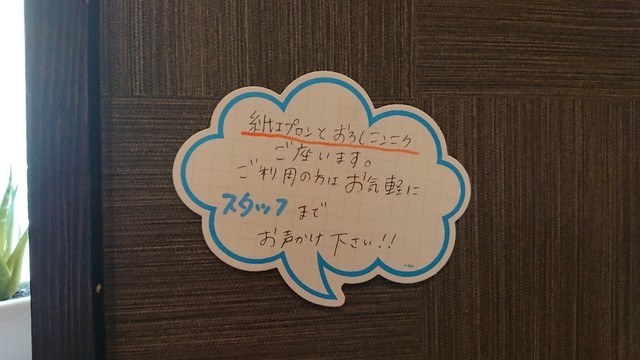 紙エプロンとおろしニンニク
ご座います。
ご利用の方はお気軽に
スタッフまで
お声かけ下さい!!